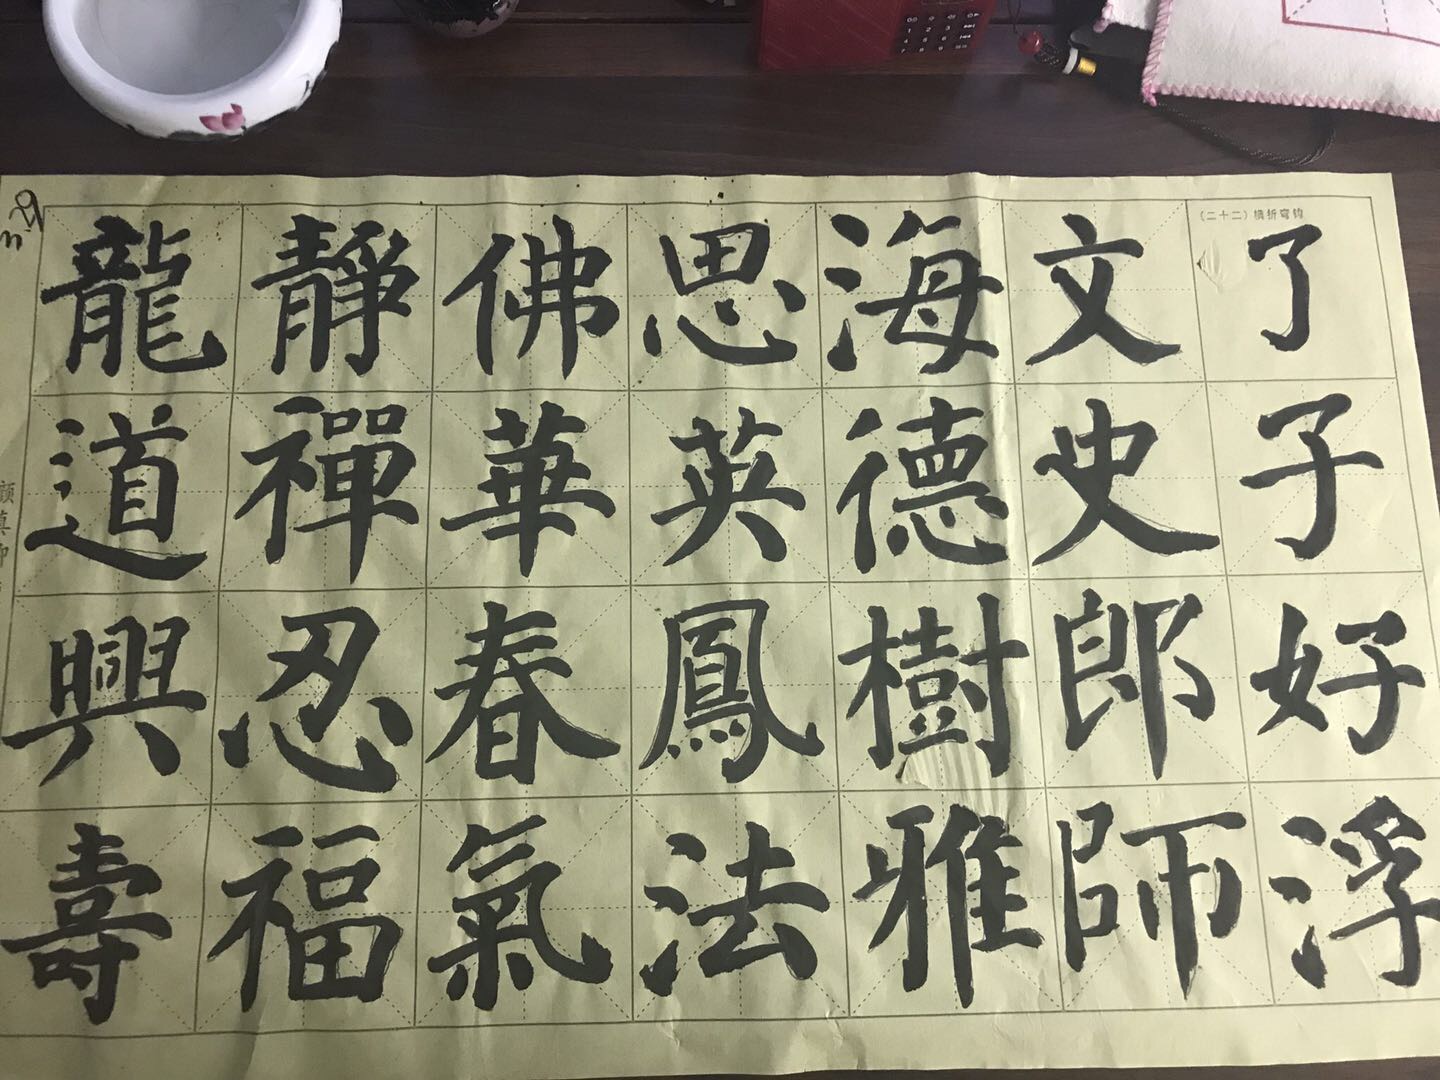 （二十二）横折弯钩
了子好浮
文史郎師
海德樹雅
思英鳳法
佛華春氣
靜禪忍福
龍道興壽
顔真卿